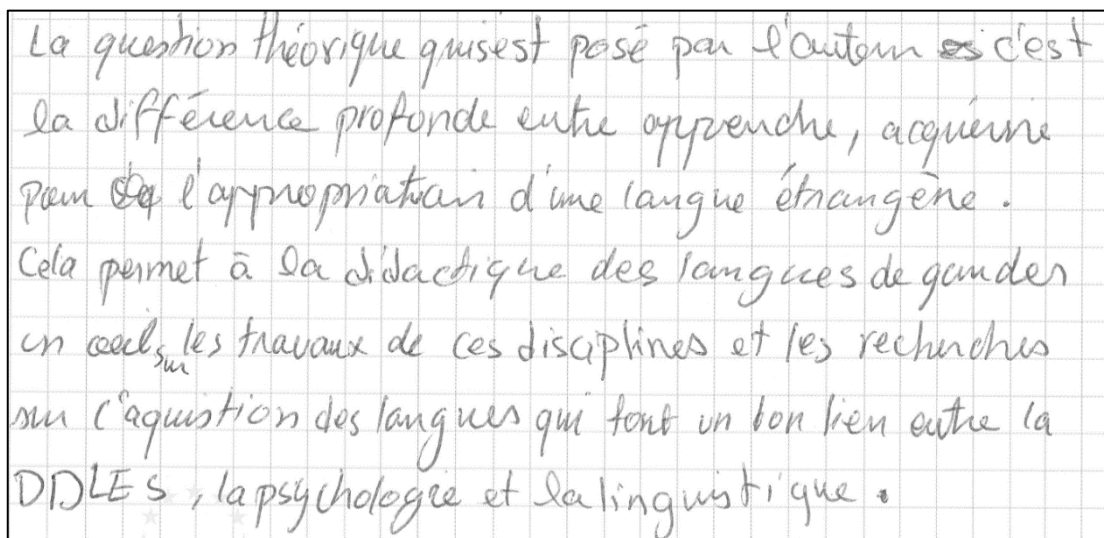 La question théorique quisest posé par l'auteur c'est
la différence profonde entre apprendre, acquérire
pour l'appropriation d'une langue étrangère.
Cela permet à la didactique des langues de garder
un oeil sur les travaux de ces disciplines et les recherches
sur l'aquistion des langues qui font un bon lien entre la
DDLES, la psychologie et la linguistique.